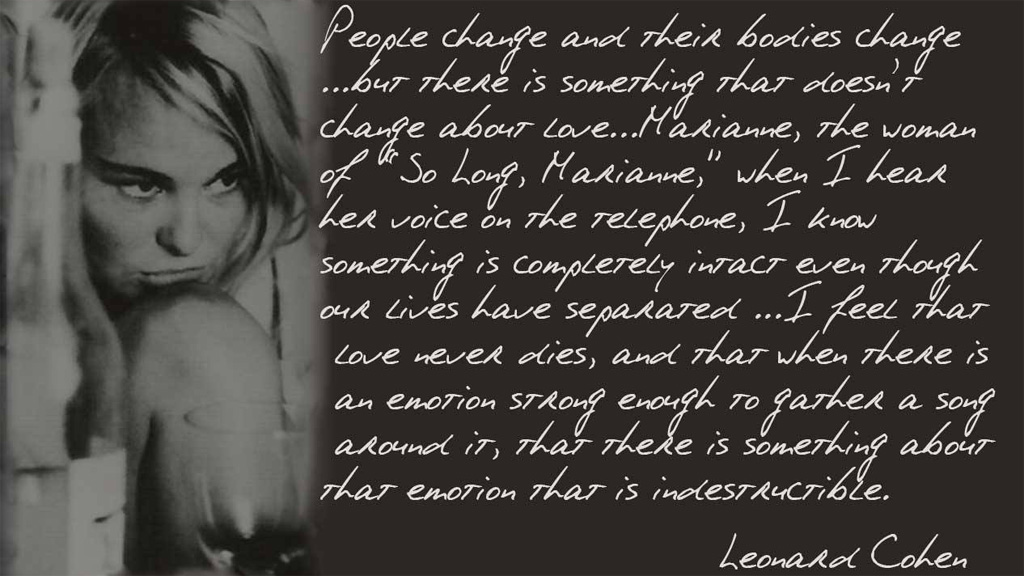 People change and their bodies change
...but there is something that doesn't
change about love...Marianne, the woman
of "So Long, Marianne," when I hear
her voice on the telephone, I know
something is completely intact even though
our lives have separated ...I feel that
love never dies, and that when there is
an emotion strong enough to gather a song
around it, that there is something about
that emotion that is indestructible.
Leonard Cohen